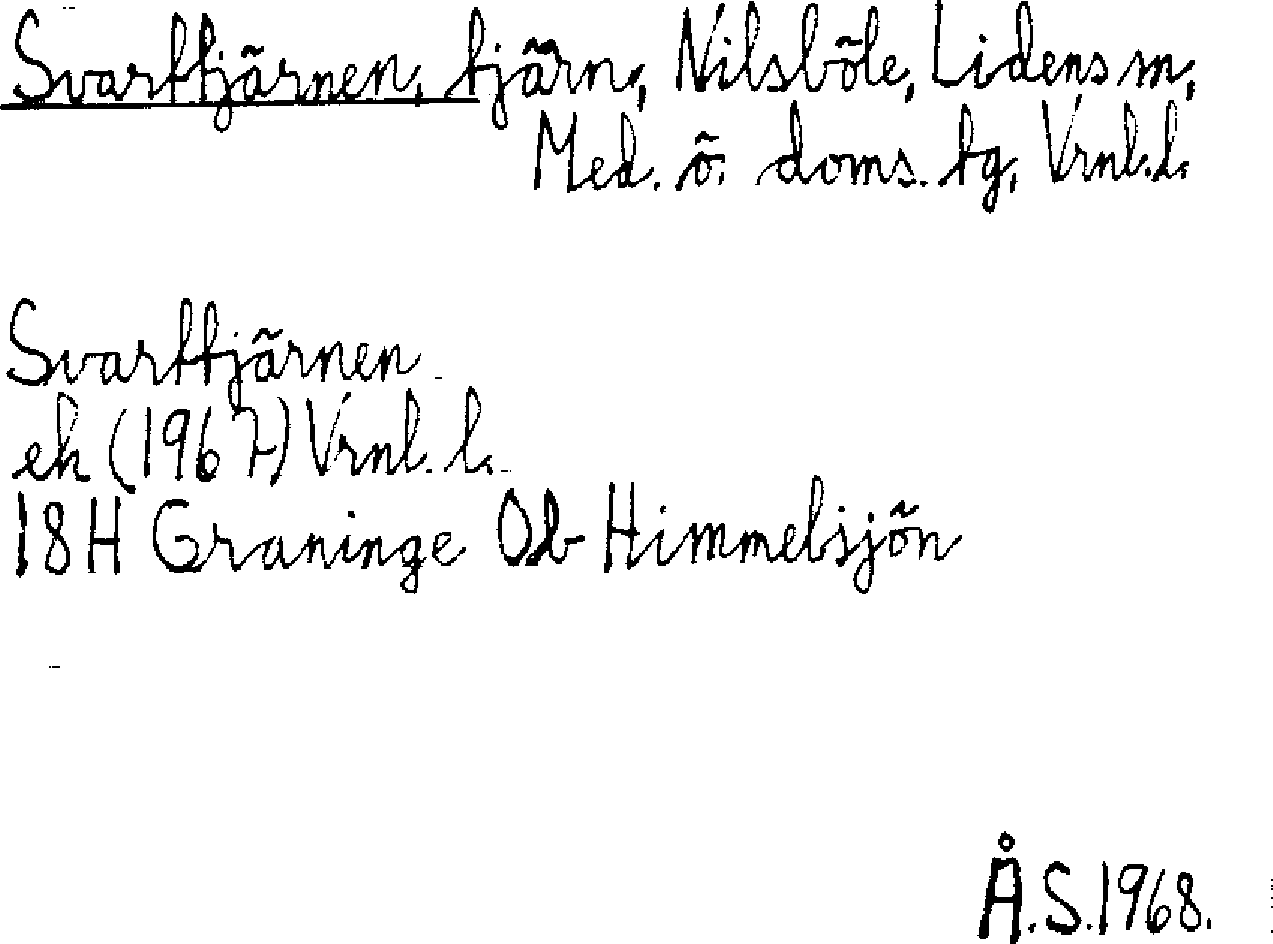 Svarttjärnen, tjärn, Nilsböle, Lidens sn,
Med. ö. doms. tg, Vrnl.l.
Svarttjärnen
ek (1967) Vrnl. l.
18H Graninge Ob Himmelsjön
Å.S.1968.